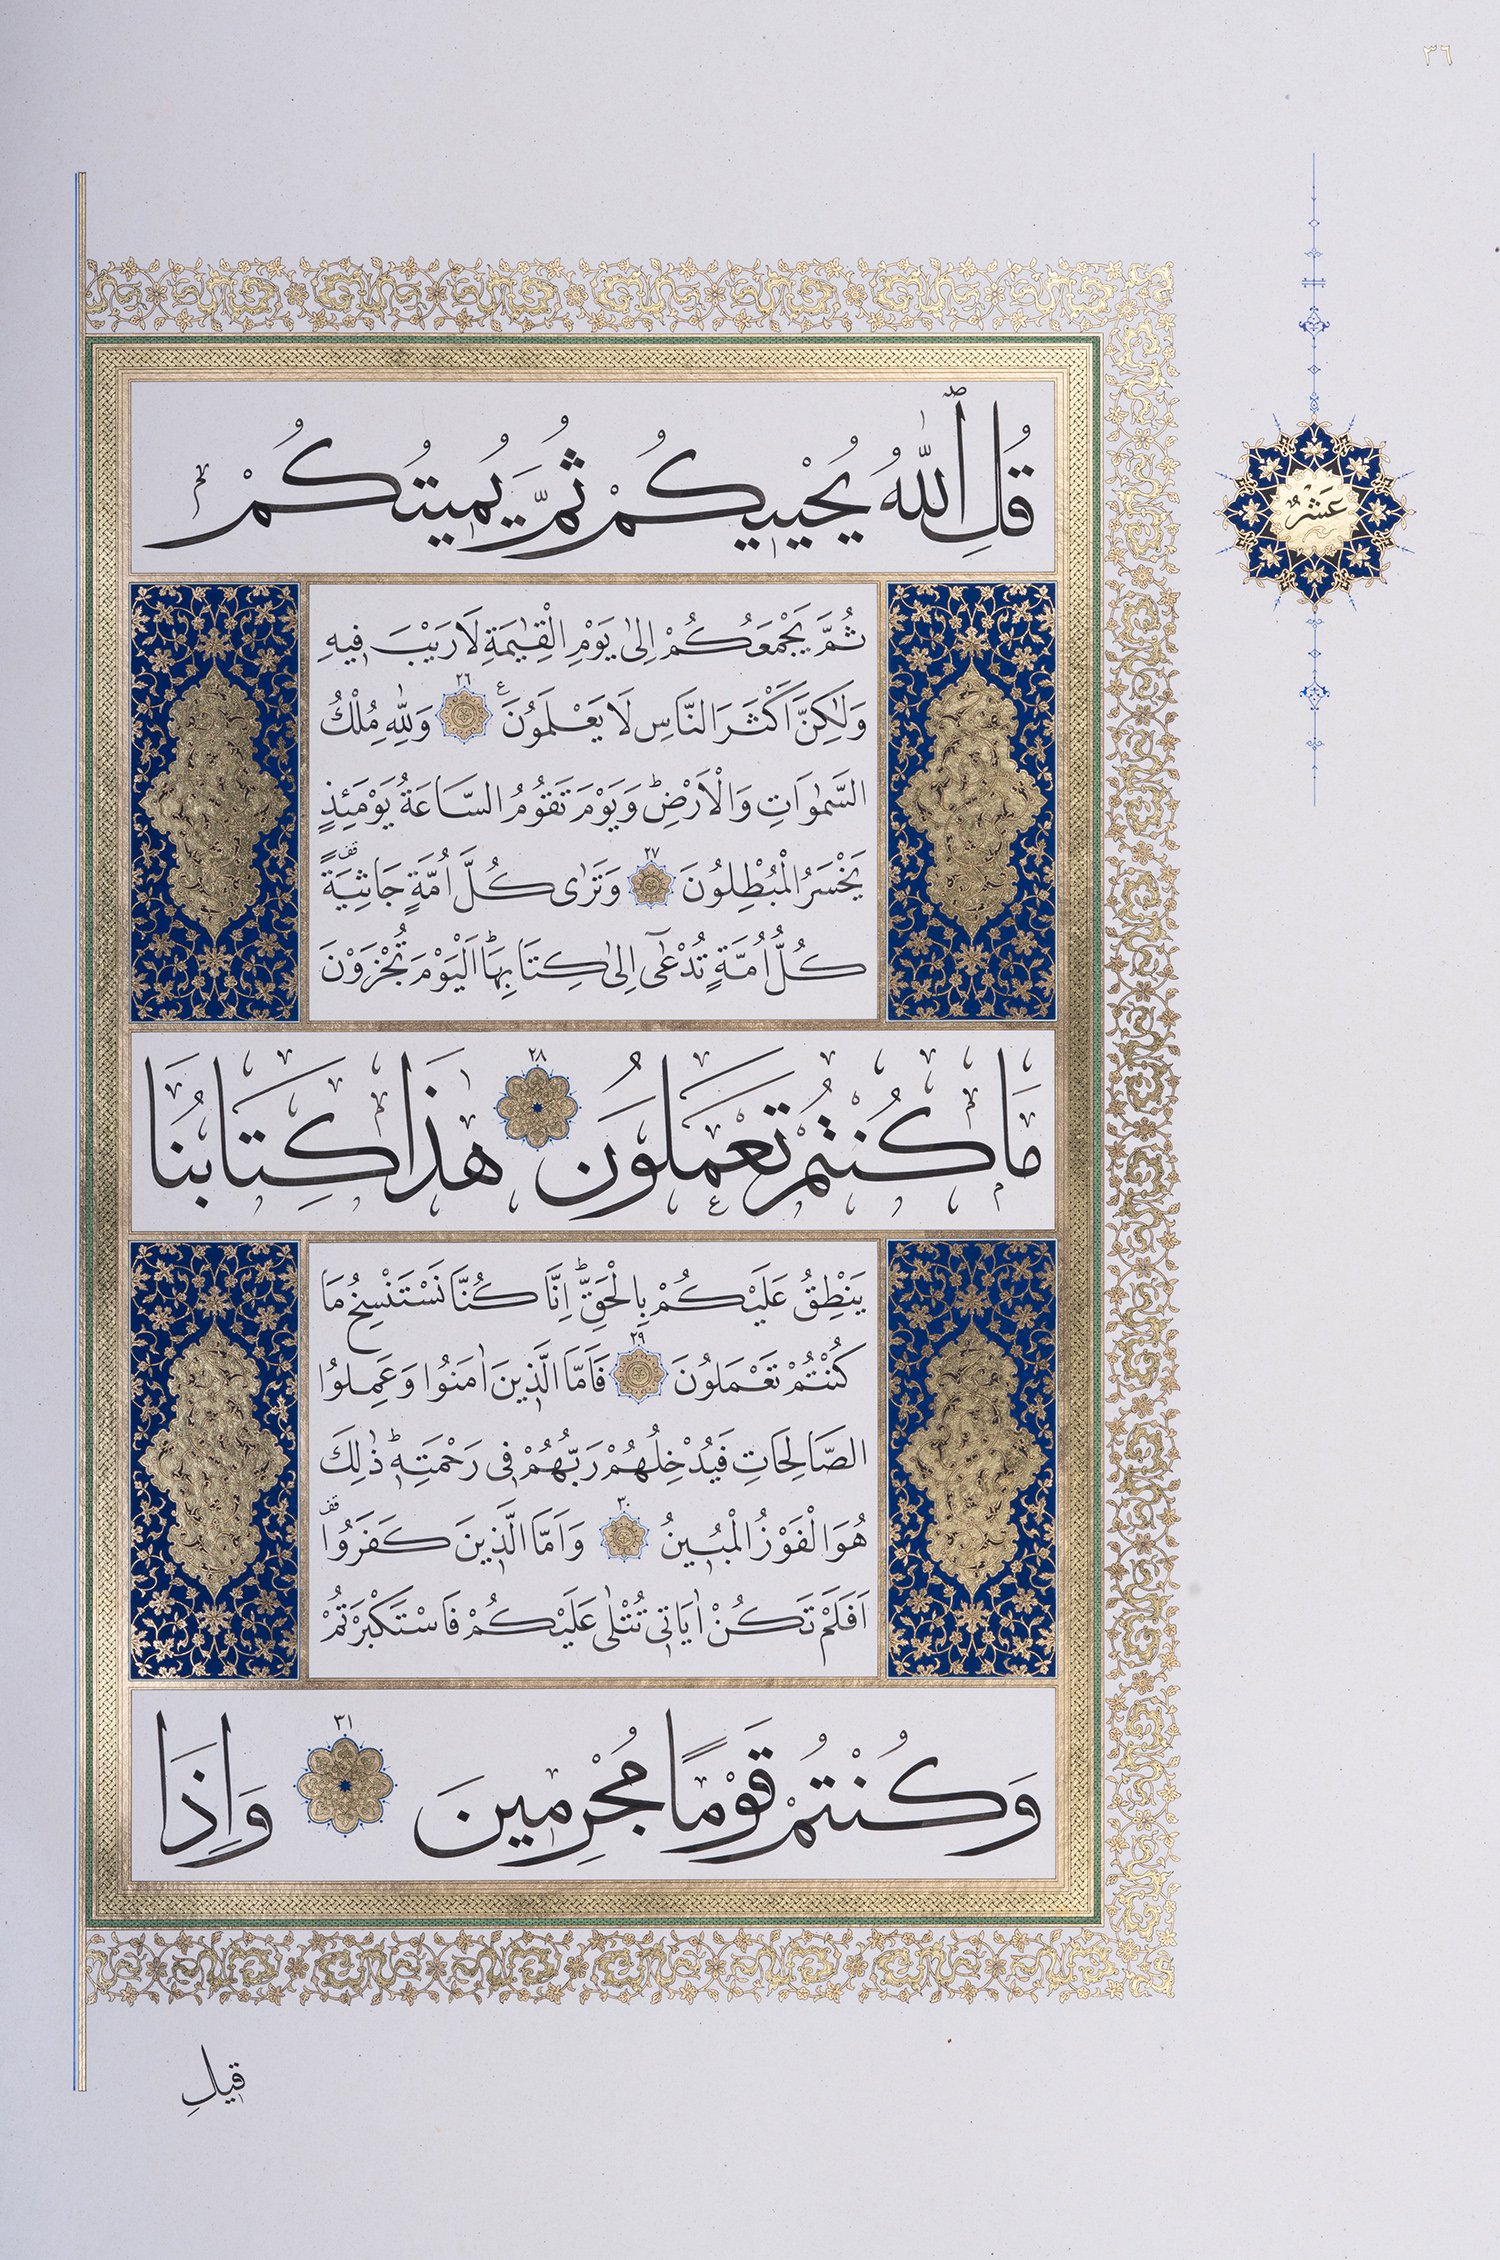 ٣٦
عَشْرٌ
قُلِ ٱللّٰهُ يُحْيٖيكُمْ ثُمَّ يُمٖيتُكُمْ
ثُمَّ يَجْمَعُكُمْ اِلٰى يَوْمِ الْقِيٰمَةِ لَا رَيْبَ فٖيهِ
وَلٰكِنَّ اَكْثَرَ النَّاسِ لَا يَعْلَمُونَ ع ٢٦ وَلِلّٰهِ مُلْكُ
السَّمٰوَاتِ وَالْاَرْضِؕ وَيَوْمَ تَقُومُ السَّاعَةُ يَوْمَئِذٍ
يَخْسَرُ الْمُبْطِلُونَ ٢٧ وَتَرٰى كُلَّ اُمَّةٍ جَاثِيَةً قف
كُلُّ اُمَّةٍ تُدْعٰٓى اِلٰى كِتَابِهَاؕ اَلْيَوْمَ تُجْزَوْنَ
مَا كُنْتُمْ تَعْمَلُونَ ٢٨ هٰذَا كِتَابُنَا
يَنْطِقُ عَلَيْكُمْ بِالْحَقِّؕ اِنَّا كُنَّا نَسْتَنْسِخُ مَا
كُنْتُمْ تَعْمَلُونَ ٢٩ فَاَمَّا الَّذٖينَ اٰمَنُوا وَعَمِلُوا
الصَّالِحَاتِ فَيُدْخِلُهُمْ رَبُّهُمْ فٖى رَحْمَتِهٖؕ ذٰلِكَ
هُوَ الْفَوْزُ الْمُبٖينُ ٣٠ وَاَمَّا الَّذٖينَ كَفَرُوا قف
اَفَلَمْ تَكُنْ اٰيَاتٖى تُتْلٰى عَلَيْكُمْ فَاسْتَكْبَرْتُمْ
وَكُنْتُمْ قَوْمًا مُجْرِمٖينَ ٣١ وَاِذَا
قٖيلِ